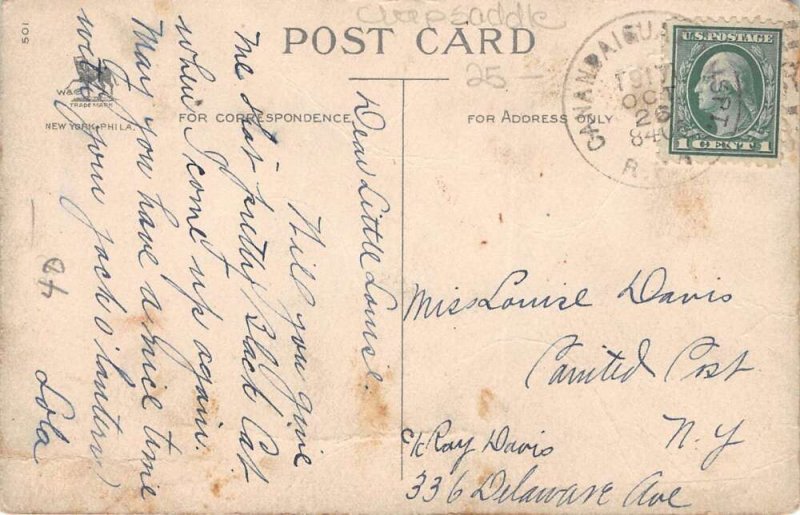 501
POST CARD
25
W&B
TRADE MARK
NEW YORK-PHILA.
FOR CORRESPONDENCE
FOR ADDRESS ONLY
CANANDAIGUA
1917
OCT
26
840
U.S. POSTAGE
1 CENTS 1
Dear Little Louise.
Will you give
me that pretty Black Cat
when I come up again.
May you have a nice time
with your Jack o'lantern
Lola
Miss Louise Davis
Canited Post
N.Y
c/c Ray Davis
336 Delaware Ave